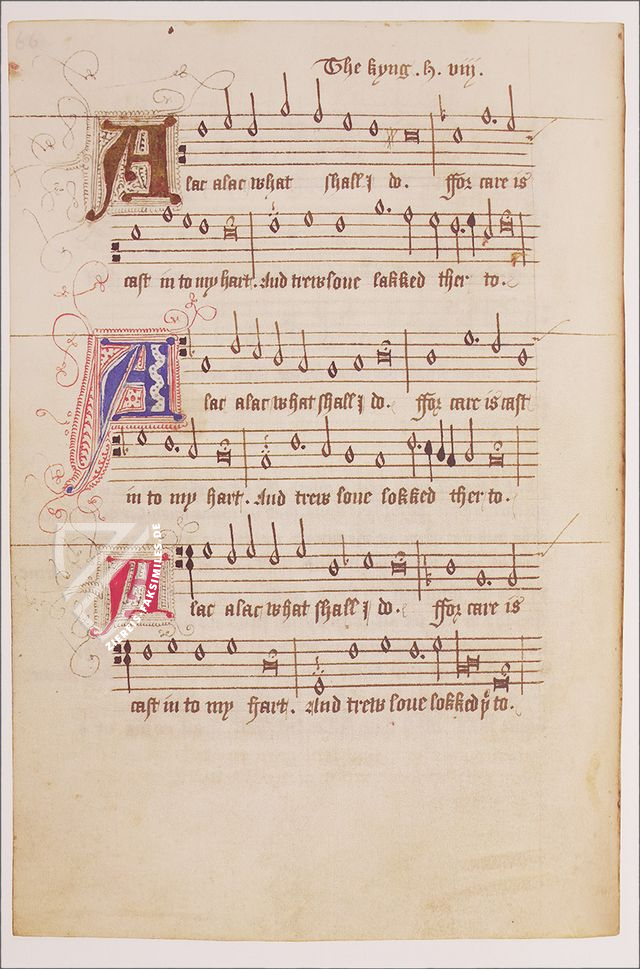 66
The kyng . h . viij .
Alac alac what shall J do . ffor care is
cast in to my hart . And trew loue lakked ther to .
Alac alac what shall J do . ffor care is cast
in to my hart . And trew loue lokked ther to .
Alac alac what shall J do . ffor care is
cast in to my hart . And trew loue lokked þ to .
ZIEREIS FAKSIMILES.DE